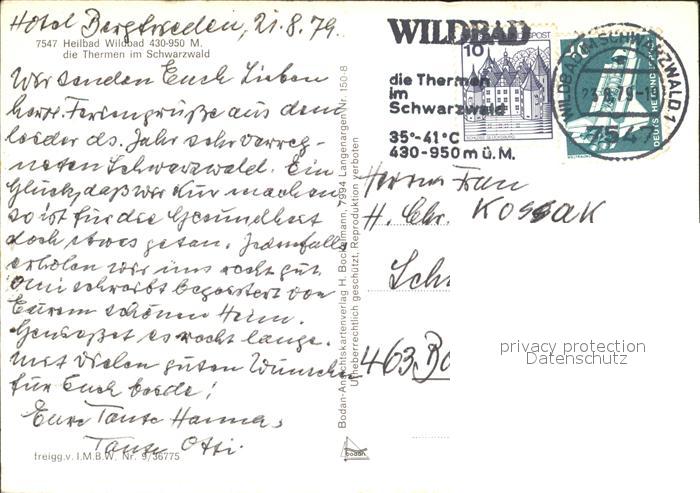 Hotel Bergfrieden, 21.8.79.
7547 Heilbad Wildbad 430-950 M.
die Thermen im Schwarzwald
Wir senden Euch Lieben
herzl. Feriengrüße aus dem
leider ds. Jahr sehr verreg-
neten Schwarzwald. Ein
Glück, daß wir Kur machen
so ist für die Gesundheit
doch etwas getan. Jedenfalls
erholen wir uns recht gut.
Omi schreibt begeistert von
Eurem schönen Heim.
Genießet es recht lange.
Mit vielen guten Wünschen
für Euch beide!
Eure Tante Hanna,
Tante Otti.
freigg.v. I.M.B.W. Nr. 9/36775
Bodan-Ansichtskartenverlag H. Bockelmann, 7994 Langenargen Nr. 150-8
Urheberrechtlich geschützt, Reproduktion verboten
bodan
WILDBAD
die Thermen
im
Schwarzwald
35°-41°C
430-950m ü. M.
10
WILDBAD IM SCHWARZWALD 1
23.8.79
7547
Herrn Frau
H. Chr. KOSSAK
Sch
463 Bo
privacy protection
Datenschutz